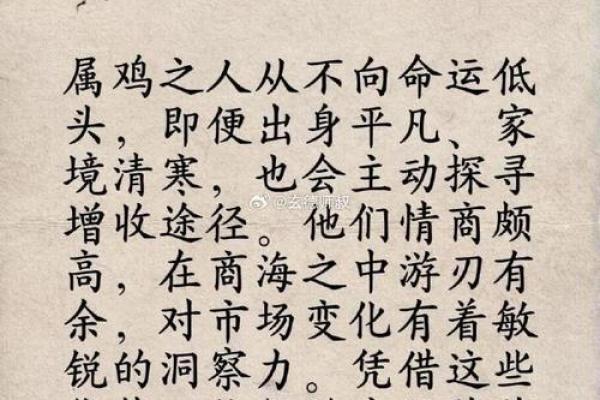 属鸡之人从不向命运低
头，即便出身平凡、家
境清寒，也会主动探寻
增收途径。他们情商颇
@玄德师叔
高，在商海之中游刃有
余，对市场变化有着敏
锐的洞察力。凭借这些